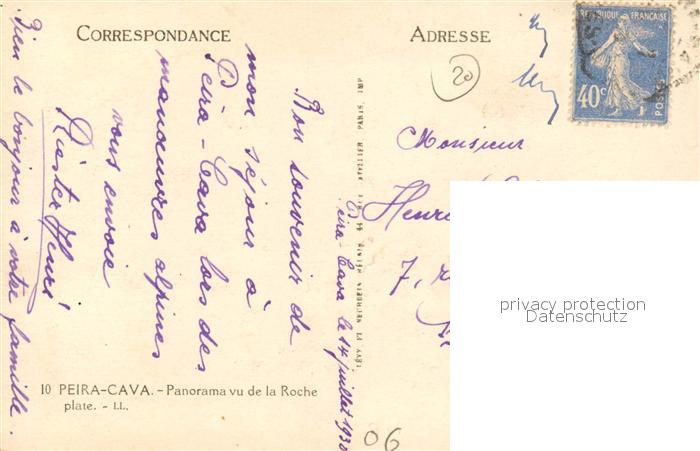 CORRESPONDANCE
ADRESSE
RÉPUBLIQUE FRANÇAISE
40c
POSTES
20
Peira-Cava le 14 juillet 1930
Bon souvenir de
mon séjour à
Peira-Cava lors des
manœuvres alpines
vous envoie
Henri
Bien le bonjour à votre famille.
Monsieur
Henri
7,
10 PEIRA-CAVA. - Panorama vu de la Roche
plate. - LL.
LÉVY ET NEURDEIN RÉUNIS, 44 RUE LETELLIER, PARIS, IMP
06
privacy protection
Datenschutz